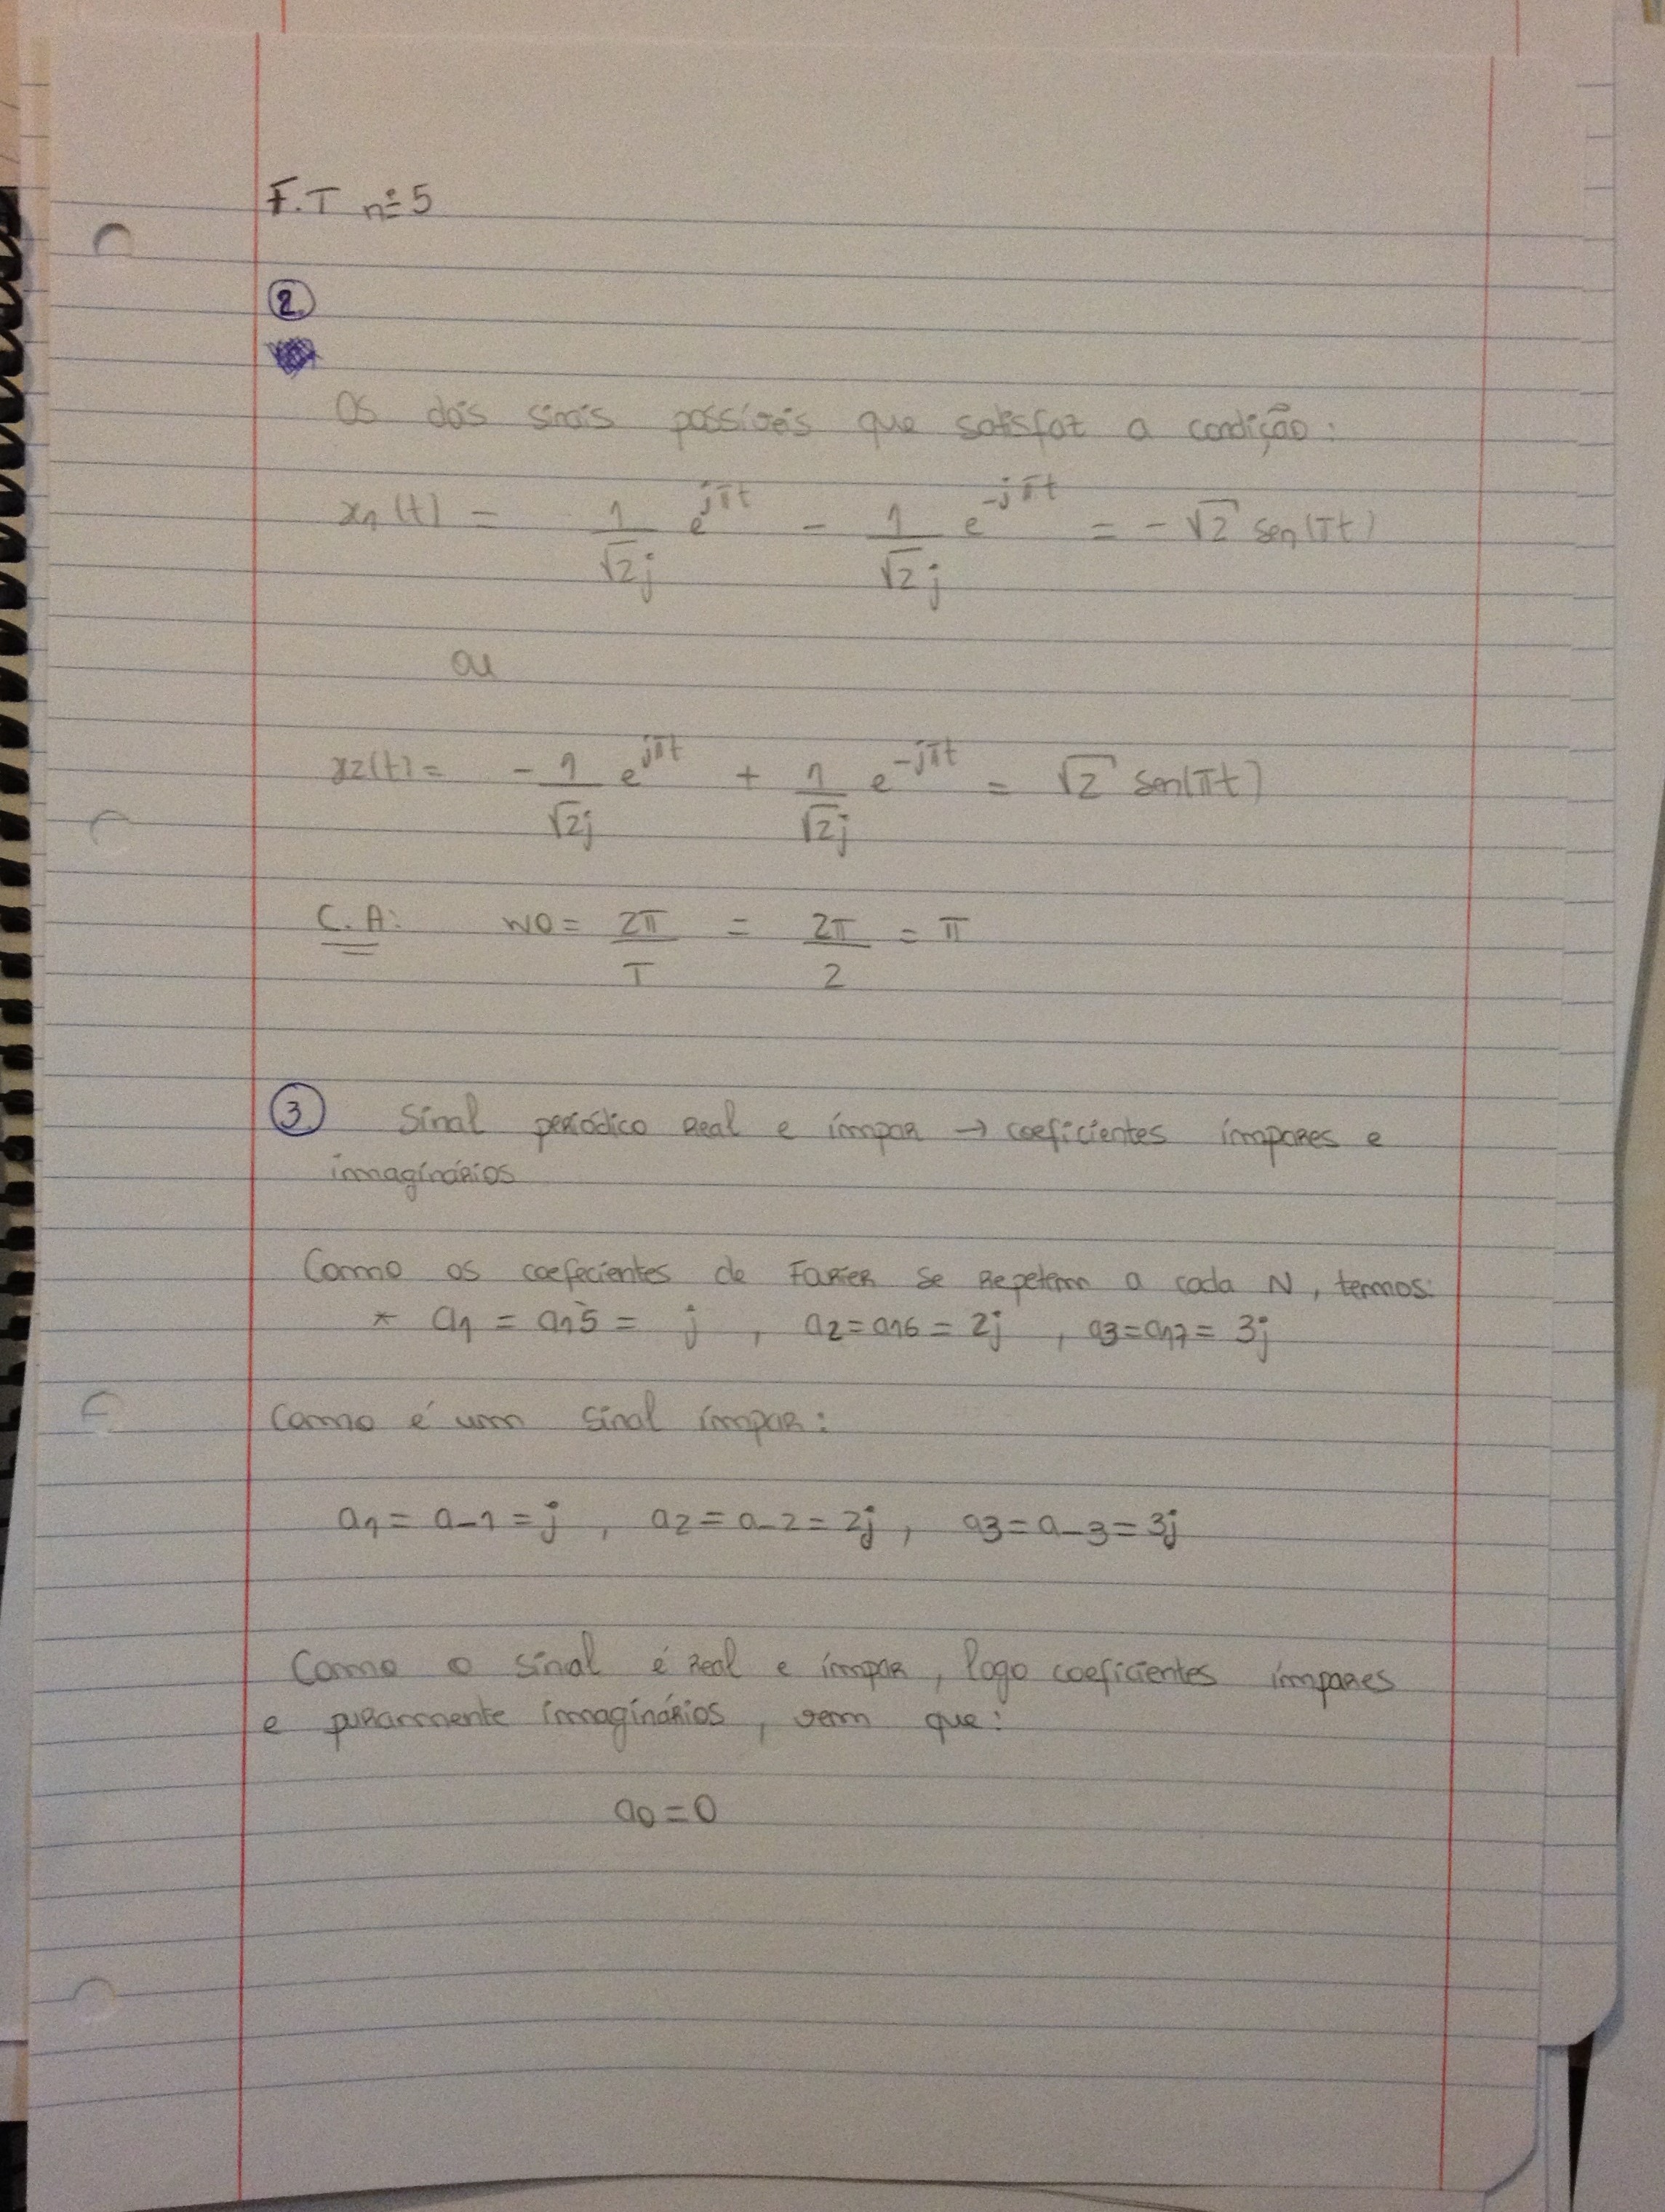 F.T nº5
2.
Os dois sinais possíveis que satisfaz a condição:
x1(t) = 1/√2j e^jπt - 1/√2j e^-jπt = -√2 sen(πt)
ou
x2(t) = -1/√2j e^jπt + 1/√2j e^-jπt = √2 sen(πt)
C.A: w0 = 2π/T = 2π/2 = π
3. Sinal periódico Real e ímpar → coeficientes ímpares e
imaginários
Como os coefecientes de Farier se repetem a cada N, temos:
* a1 = a15 = j, a2 = a16 = 2j, a3 = a17 = 3j
Como é um sinal ímpar:
a1 = a-1 = j, a2 = a-2 = 2j, a3 = a-3 = 3j
Como o sinal é Real e ímpar, logo coeficientes ímpares
e puramente imaginários, vem que:
a0 = 0